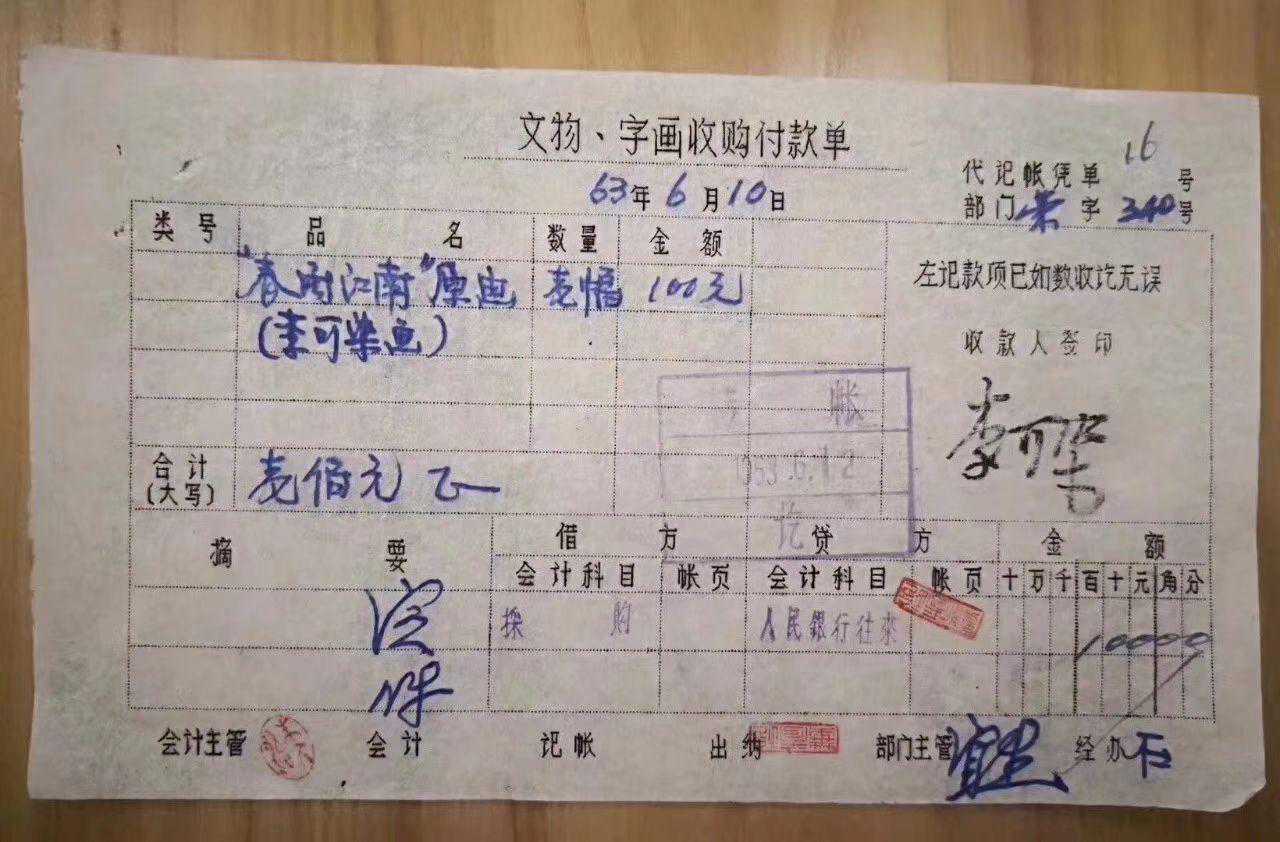 文物、字画收购付款单
63年6月10日
代记帐凭单 16 号
部门 荣 字 340号
类号 品名 数量 金额
"春雨江南"原画 壱幅 100元
(李可染画)
左记款项已如数收讫无误
收款人签印
李可染
帐
讫
合计
(大写) 壱佰元正
摘要 借方 贷方 金额
会计科目 帐页 会计科目 帐页 十万千百十元角分
採购 人民銀行往来 10000
会计主管 会计 记帐 出纳 部门主管 经办